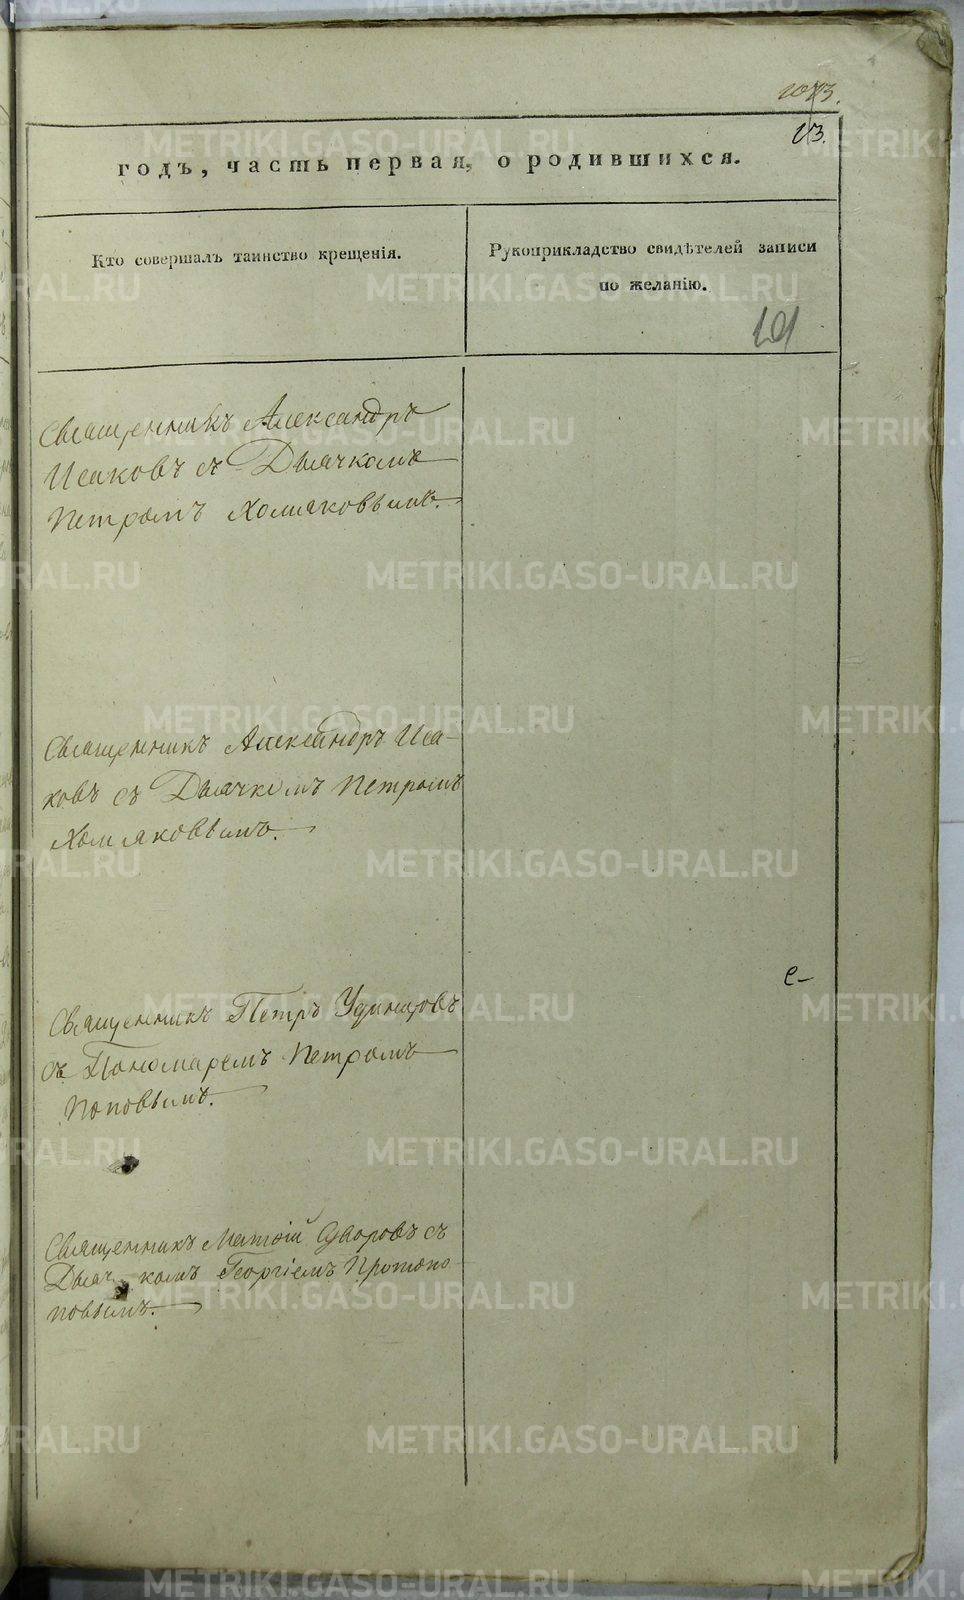 годъ, часть первая, о родившихся.
Кто совершалъ таинство крещенія.
Рукоприкладство свидѣтелей записи
по желанію.
101
Священникъ Александръ
Исаковъ съ Дьячкомъ
Петромъ Хомяковымъ.
Священникъ Александръ Иса-
ковъ съ Дьячкомъ Петромъ
Хомяковымъ.
Священникъ Петръ Удинцовъ
съ Пономаремъ Петромъ
Поповымъ.
Священникъ Матѳій съ
Дьячкомъ Георгіемъ Протопо
повымъ.
METRIKI.GASO-URAL.RU